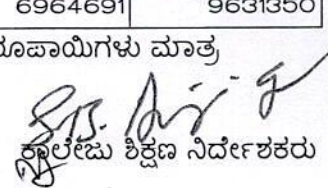 6964691 9631350
ರೂಪಾಯಿಗಳು ಮಾತ್ರ
ಕಾಲೇಜು ಶಿಕ್ಷಣ ನಿರ್ದೇಶಕರು